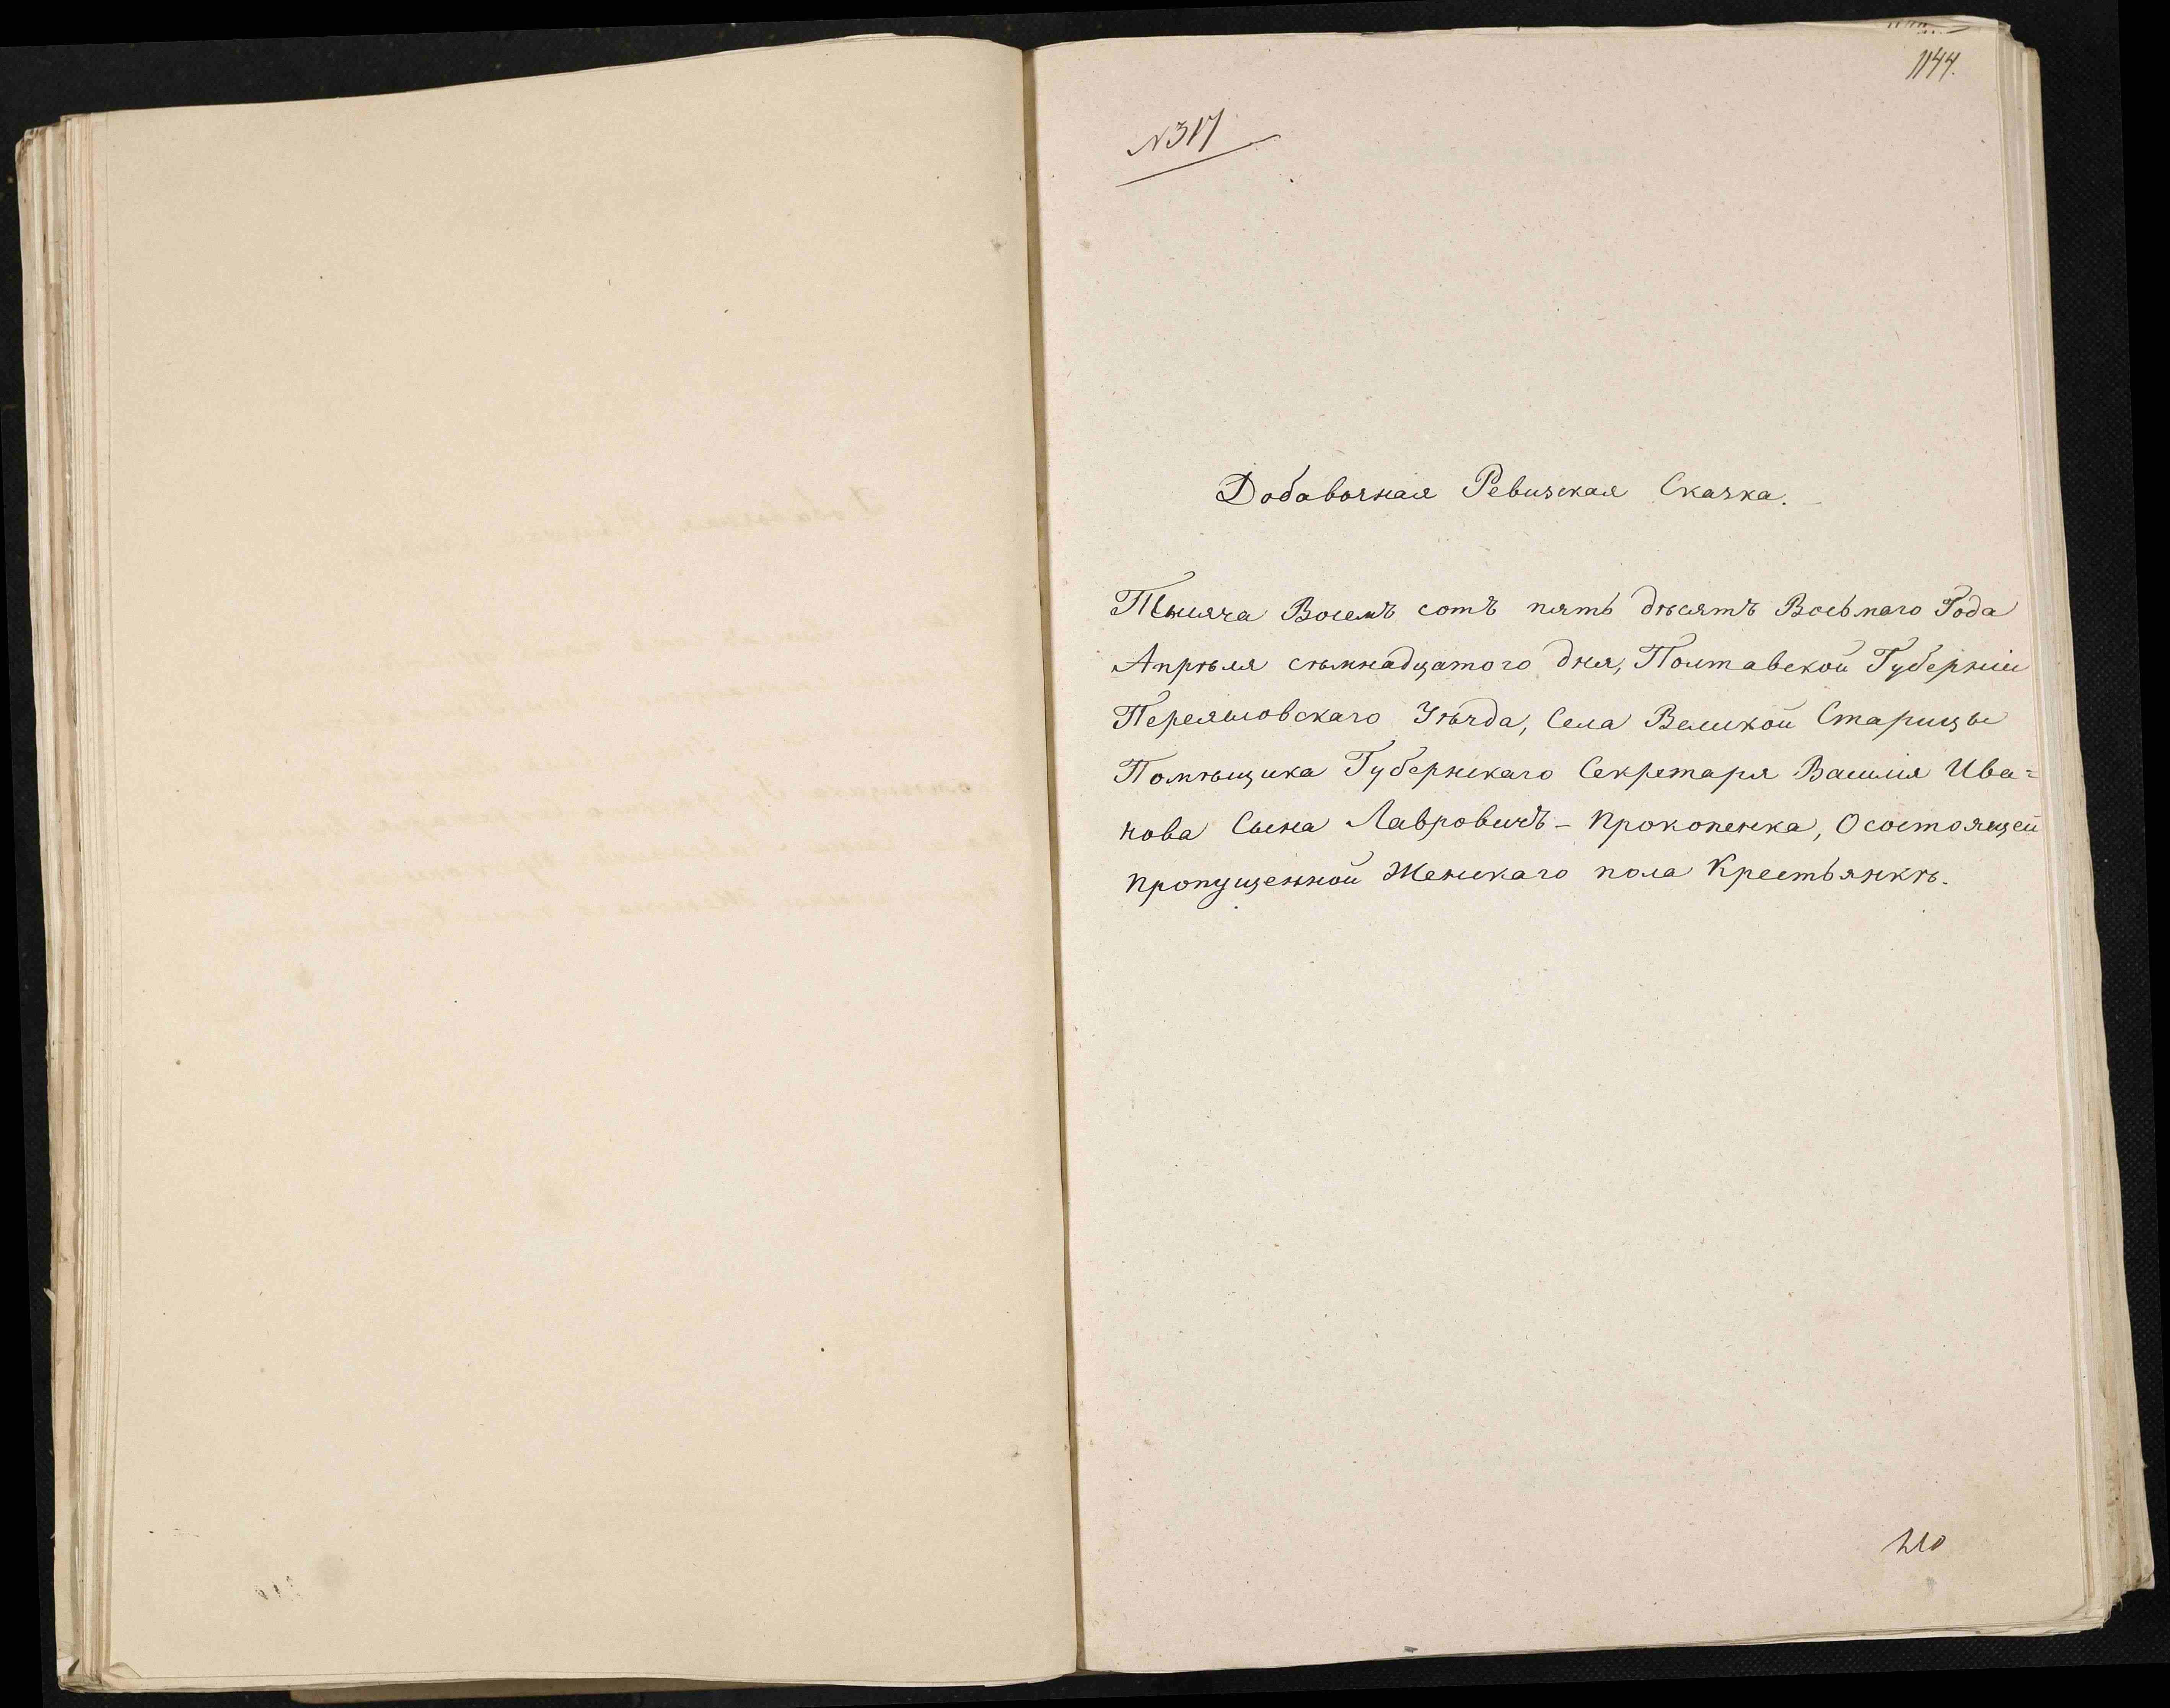 1144.
N317
Добавочная Ревизская Сказка.
Тысяча Восемъ сотъ пять дѣсятъ Восьмаго Года
Апрѣля сѣмнадцатого дня, Полтавской Губерніи
Переяаловскаго Уѣзда, Села Великой Старицы
Помѣщика Губернскаго Секретаря Василія Ива=
нова Сына Лавровичъ - Прокопенка, О состоящей
пропущенной Женскаго пола Крестьянкѣ.
210